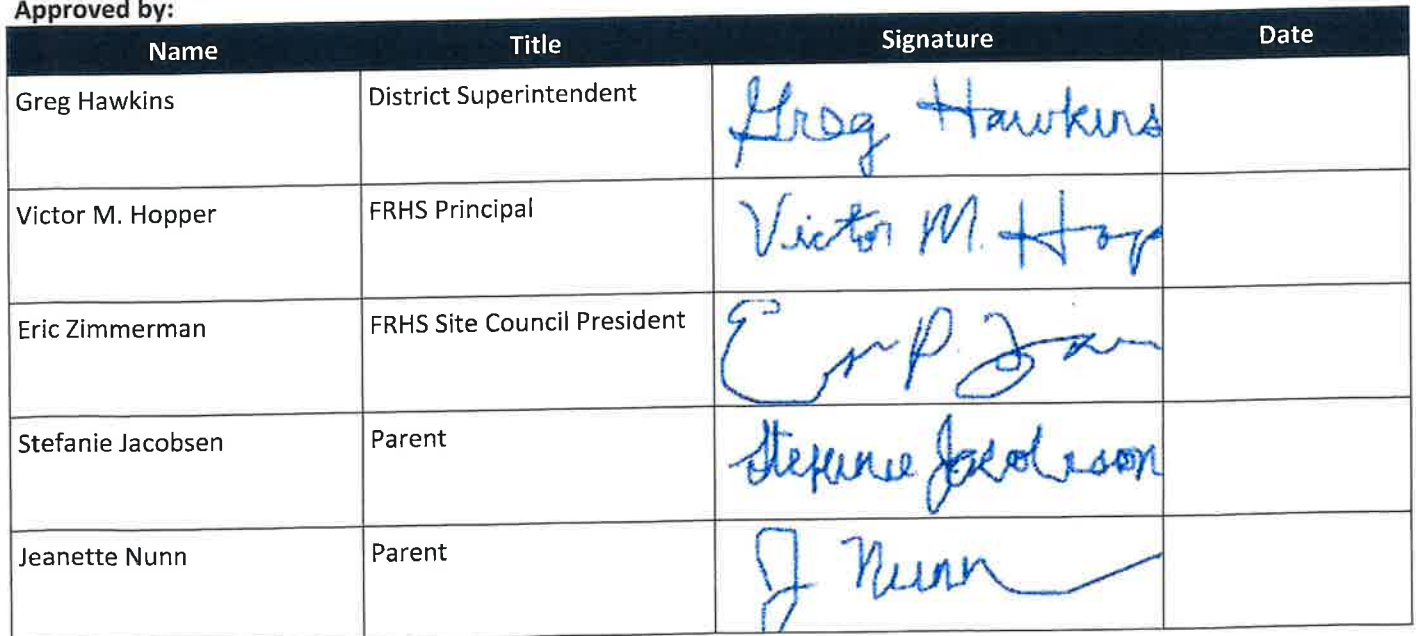 Approved by:
Name Title Signature Date
Greg Hawkins District Superintendent Greg Hawkins
Victor M. Hopper FRHS Principal Victor M. Hop
Eric Zimmerman FRHS Site Council President
Stefanie Jacobsen Parent Stefanie Jacobsen
Jeanette Nunn Parent J Nunn